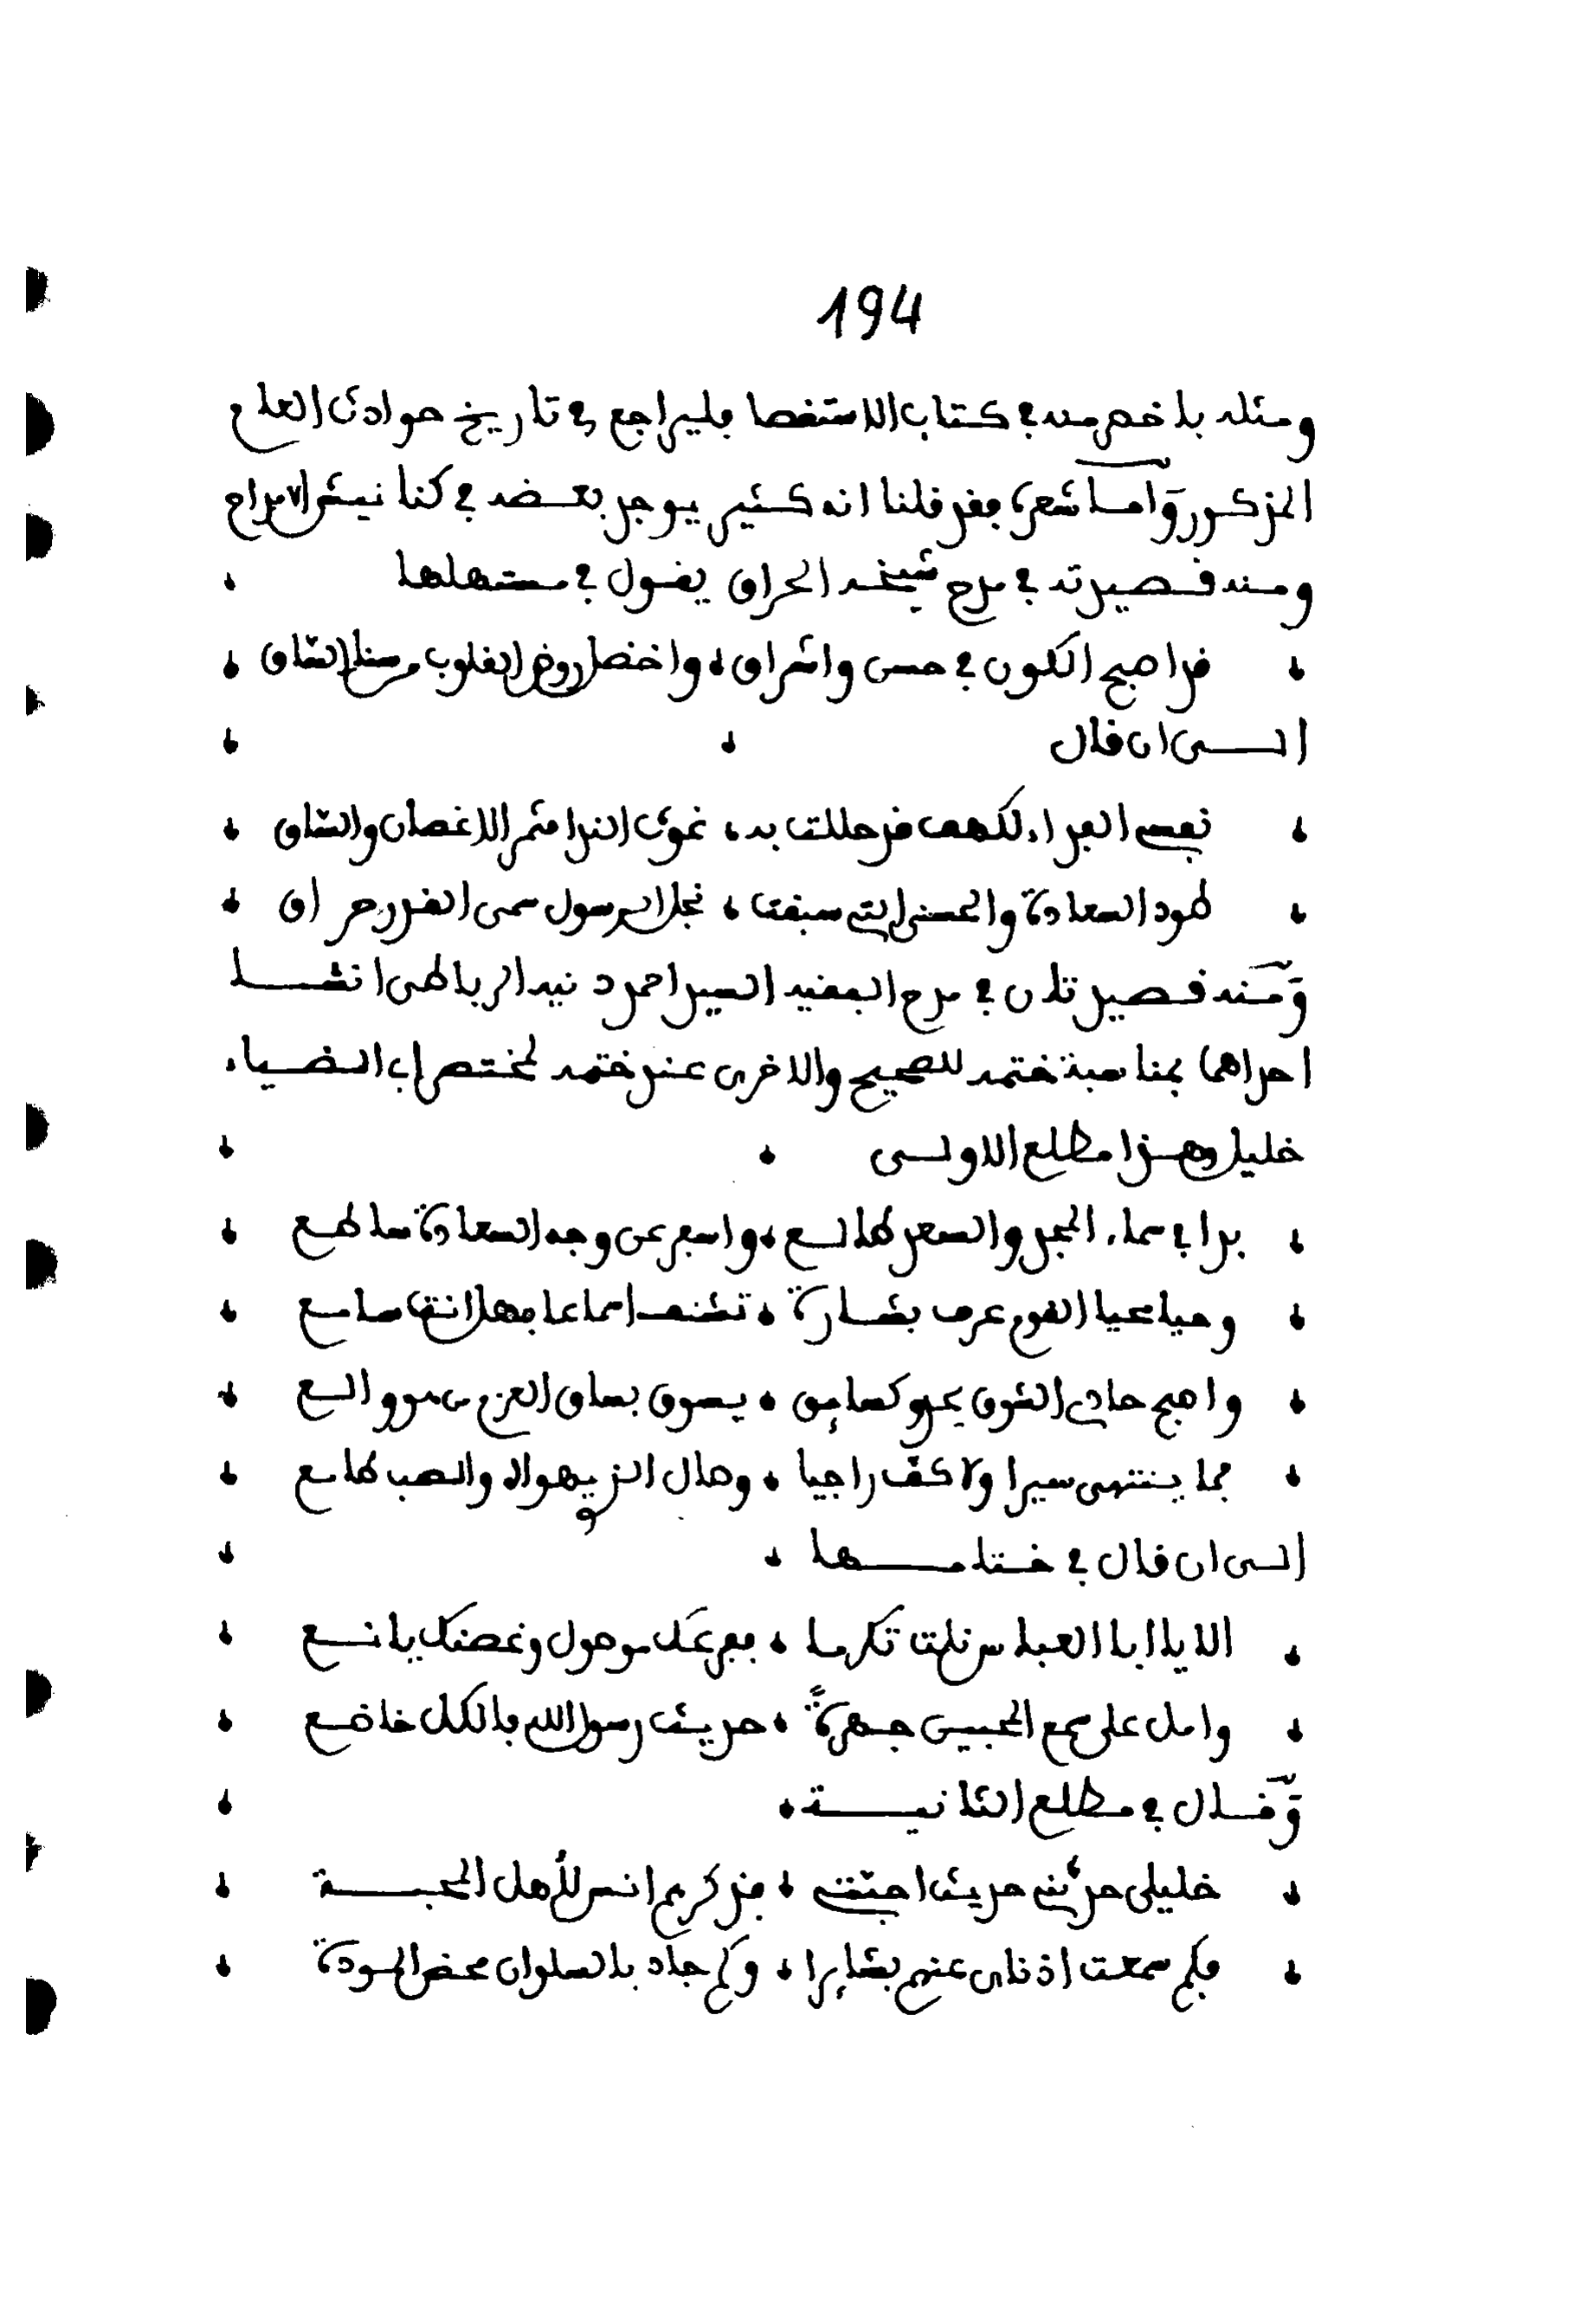 194
ومثله باخصر منه في كتاب الاستقصا فليراجع في تاريخ حوادث العام
المذكور وأما شعره فقد قلنا انه كثير يوجد بعضه في كنانيش الامداح
ومنه قصيدته في مدح شيخه الحراق يقول في مستهلها
قد اصبح الكون في حسن واشراق، واخضل روض القلوب من سنا الساق
السى ان قال
نفسي الفداء لكهف قد حللت به، غوث الندا مثمر الاغصان والساق
طود السعادة والحسنى التي سبقت، نجل الرسول سمى القدر حراق
ومنه قصيدتان في مدح الفقيه السيد احمد دنيه الرباطي انشا
احداهما بمناسبة ختمه للصحيح والاخرى عند ختمه لمختصر ابي الضياء
خليل وهذا مطلع الاولى
بدا في سماء المجد والسعد طالع، واسفر عن وجه السعادة ساطع
وحيا محيا القوم عرف بشارة، تشنف اسماعا فهل انت سامع
واصبح حادى الشوق يحدو كسائق، يسوق بساق العزم من هو والع
فما ينتهى سيرا ولا كف راجيا، وصال الذي يهواه والصب طامع
الى ان قال في ختامها
الا يا ابا العباس نلت تكرما، ففرعك موصول وغصنك يانع
وامل على سمع المحبين جهرة، حديث رسول الله فالكل خاضع
وقال في مطلع الثانية
خليلى حدثني حديث احبتي، فذكرهم انس لأهل المحبة
فكم سمعت اذناى عنهم بشايرا، وكم جاد بالسلوان محض المودة